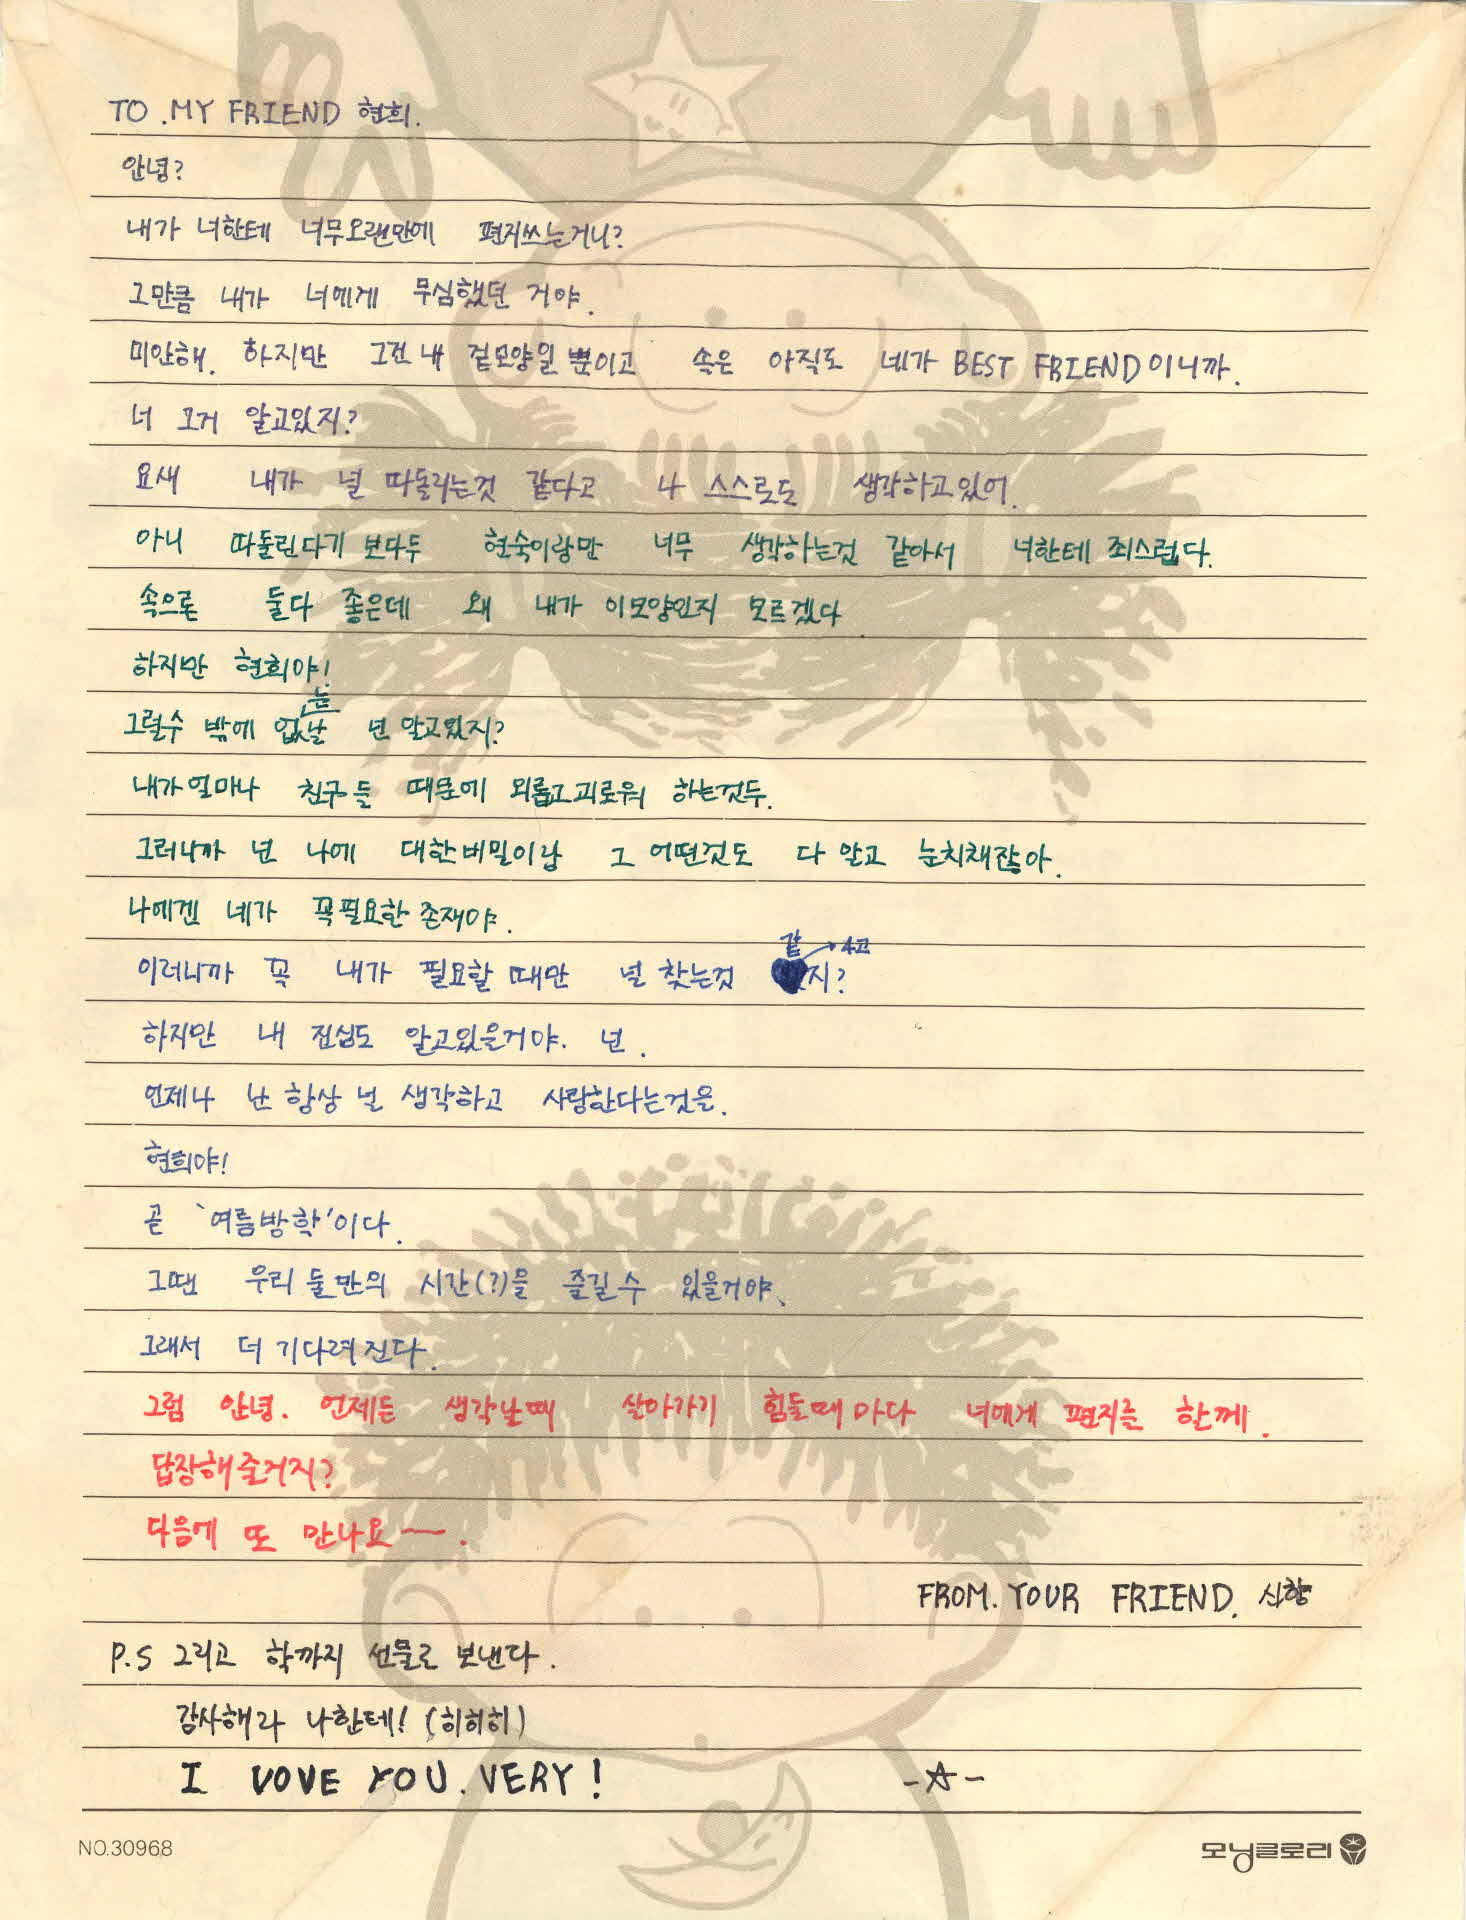 TO. MY FRIEND 현희.
안녕?
내가 너한테 너무오랜만에 편지쓰는거니?
그만큼 내가 너에게 무심했던 거야.
미안해. 하지만 그건 내 겉모양일뿐이고 속은 아직도 네가 BEST FRIEND이니까.
너 모거 알고있지?
요새 내가 널 따돌리는것 같다고 나 스스로도 생각하고있어.
아니 따돌린다기 보다두 현숙이랑만 너무 생각하는것 같아서 너한테 죄스럽다.
속으론 둘다 좋은데 왜 내가 이모양인지 모르겠다.
하지만 현희야!
그럴수 밖에 없는날 넌 알고있지?
내가얼마나 친구들 때문에 외롭고괴로워 하는것두.
그러니까 넌 나에 대한비밀이랑 그 어떤것도 다 알고 눈치채잖아.
나에겐 네가 꼭필요한 존재야.
이러니까 꼭 내가 필요할때만 널 찾는것 같지? 사고
하지만 내 진심도 알고있을거야. 넌.
언제나 난 항상 널 생각하고 사랑한다는것을.
현희야!
곧 '여름방학'이다.
그땐 우리 둘만의 시간(?)을 즐길수 있을거야.
그래서 더 기다려진다.
그럼 안녕. 언제든 생각날때 살아가기 힘들때마다 너에게 편지를 할께.
답장해줄거지?
다음에 또 만나요ー.
FROM. YOUR FRIEND. 신향
P.S 그리고 학까지 선물로 보낸다.
감사해라 나한테! (히히히)
I VOVE YOU. VERY! -☆-
NO.30968 모닝글로리